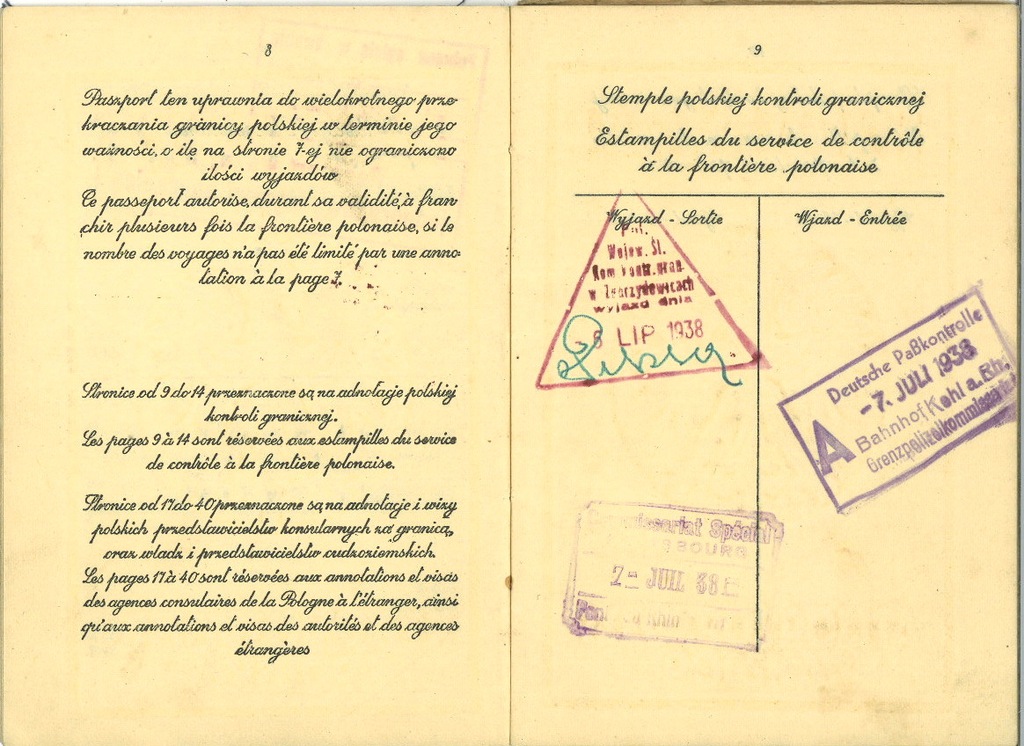 8
Paszport ten uprawnia do wielokrotnego prze-
kraczania granicy polskiej w terminie jego
ważności, o ile na stronie 7-ej nie ograniczono
ilości wyjazdów
Ce passeport autorise, durant sa validité, à fran
chir plusieurs fois la frontière polonaise, si le
nombre des voyages n'a pas été limité par une anno-
tation à la page 7.
Stronice od 9 do 14 przeznaczone są na adnotacje polskiej
kontroli granicznej.
Les pages 9 à 14 sont réservées aux estampilles du service
de contrôle à la frontière polonaise.
Stronice od 17 do 40 przeznaczone są na adnotacje i wizy
polskich przedstawicielstw konsularnych za granicą,
oraz władz i przedstawicielstw cudzoziemskich.
Les pages 17 à 40 sont réservées aux annotations et visas
des agences consulaires de la Pologne à l'étranger, ainsi
qu'aux annotations et visas des autorités et des agences
étrangères
9
Stemple polskiej kontroli granicznej
Estampilles du service de contrôle
à la frontière polonaise
Wyjazd - Sortie
Wjazd - Entrée
Wojew. Śl.
w Zebrzydowicach
wyjazd dnia
LIP 1938
Deutsche Paßkontrolle
-7. JULI 1938
A Bahnhof Kehl a. Rh.
Grenzpolizeikommissariat
Spécial
7 - JUIL 38